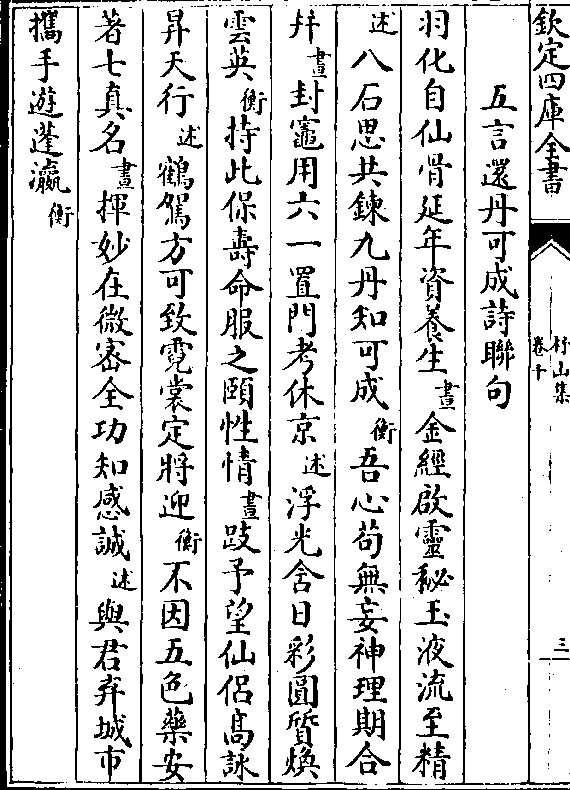 欽定四庫全書
杼山集
卷十
三
五言還丹可成詩聯句
羽化自仙骨延年資養生晝金經啟靈秘玉液流至精
述八石思共鍊九丹知可成衡吾心苟無妄神理期合
幷晝封竈用六一置門考休京述浮光含日彩圓質煥
雲英衡持此保壽命服之頤性情晝跂予望仙侶髙詠
昇天行述鶴駕方可致霓裳定將迎衡不因五色藥安
著七真名晝揮妙在微宻全功知感誠述與君弃城市
攜手遊蓬瀛衡